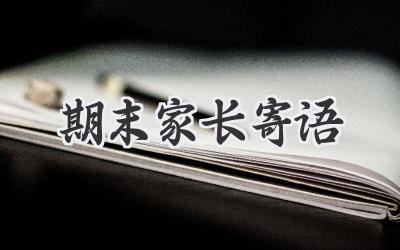 期末家长寄语